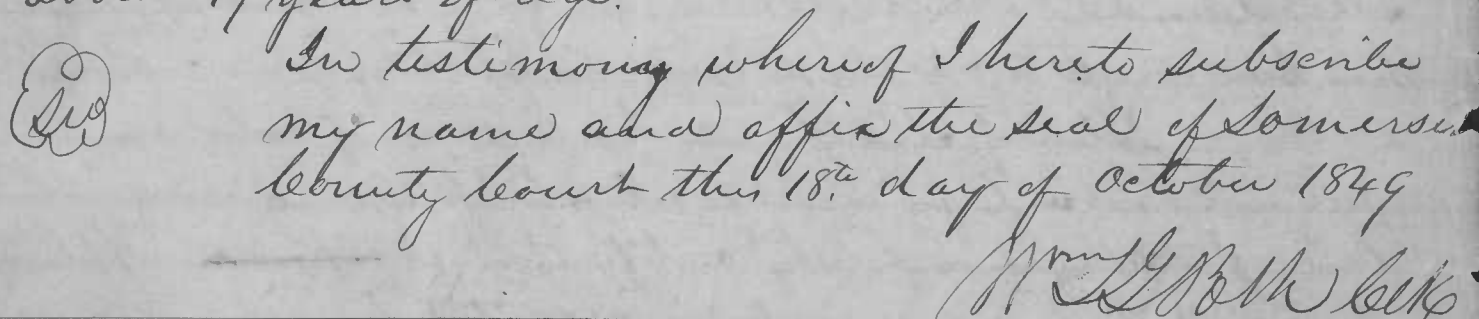 years of age.
In testimony whereof I hereto subscribe
my name and affix the seal of Somerse
County Court this 18th day of October 1849
Wm Clk